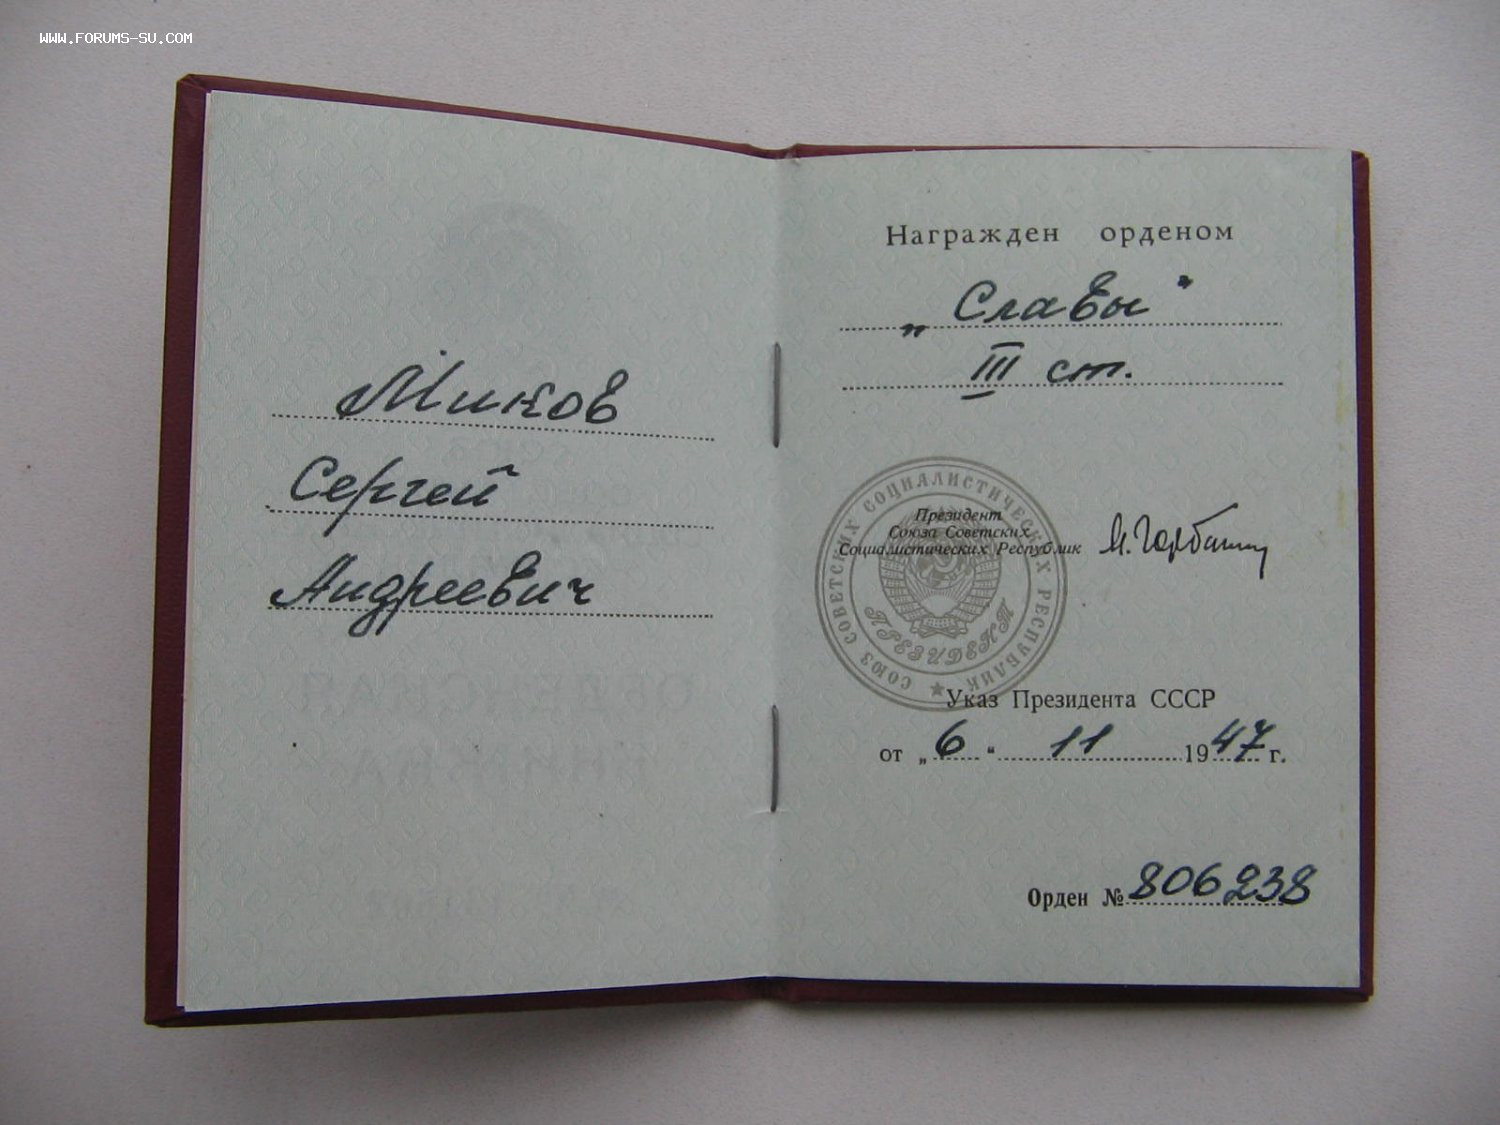 WWW.FORUMS-SU.COM
Миков
Сергей
Андреевич
Награжден орденом
„Славы“
III ст.
Президент
Союза Советских
Социалистических Республик
М. Горбачев
СОЮЗ СОВЕТСКИХ СОЦИАЛИСТИЧЕСКИХ РЕСПУБЛИК
ПРЕЗИДЕНТ
Указ Президента СССР
от „6“ 11 1947 г.
Орден № 806238